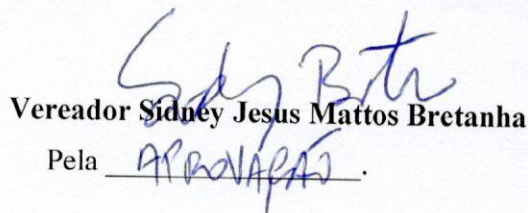 Sidney Bret
Vereador Sidney Jesus Mattos Bretanha
Pela APROVAÇÃO.